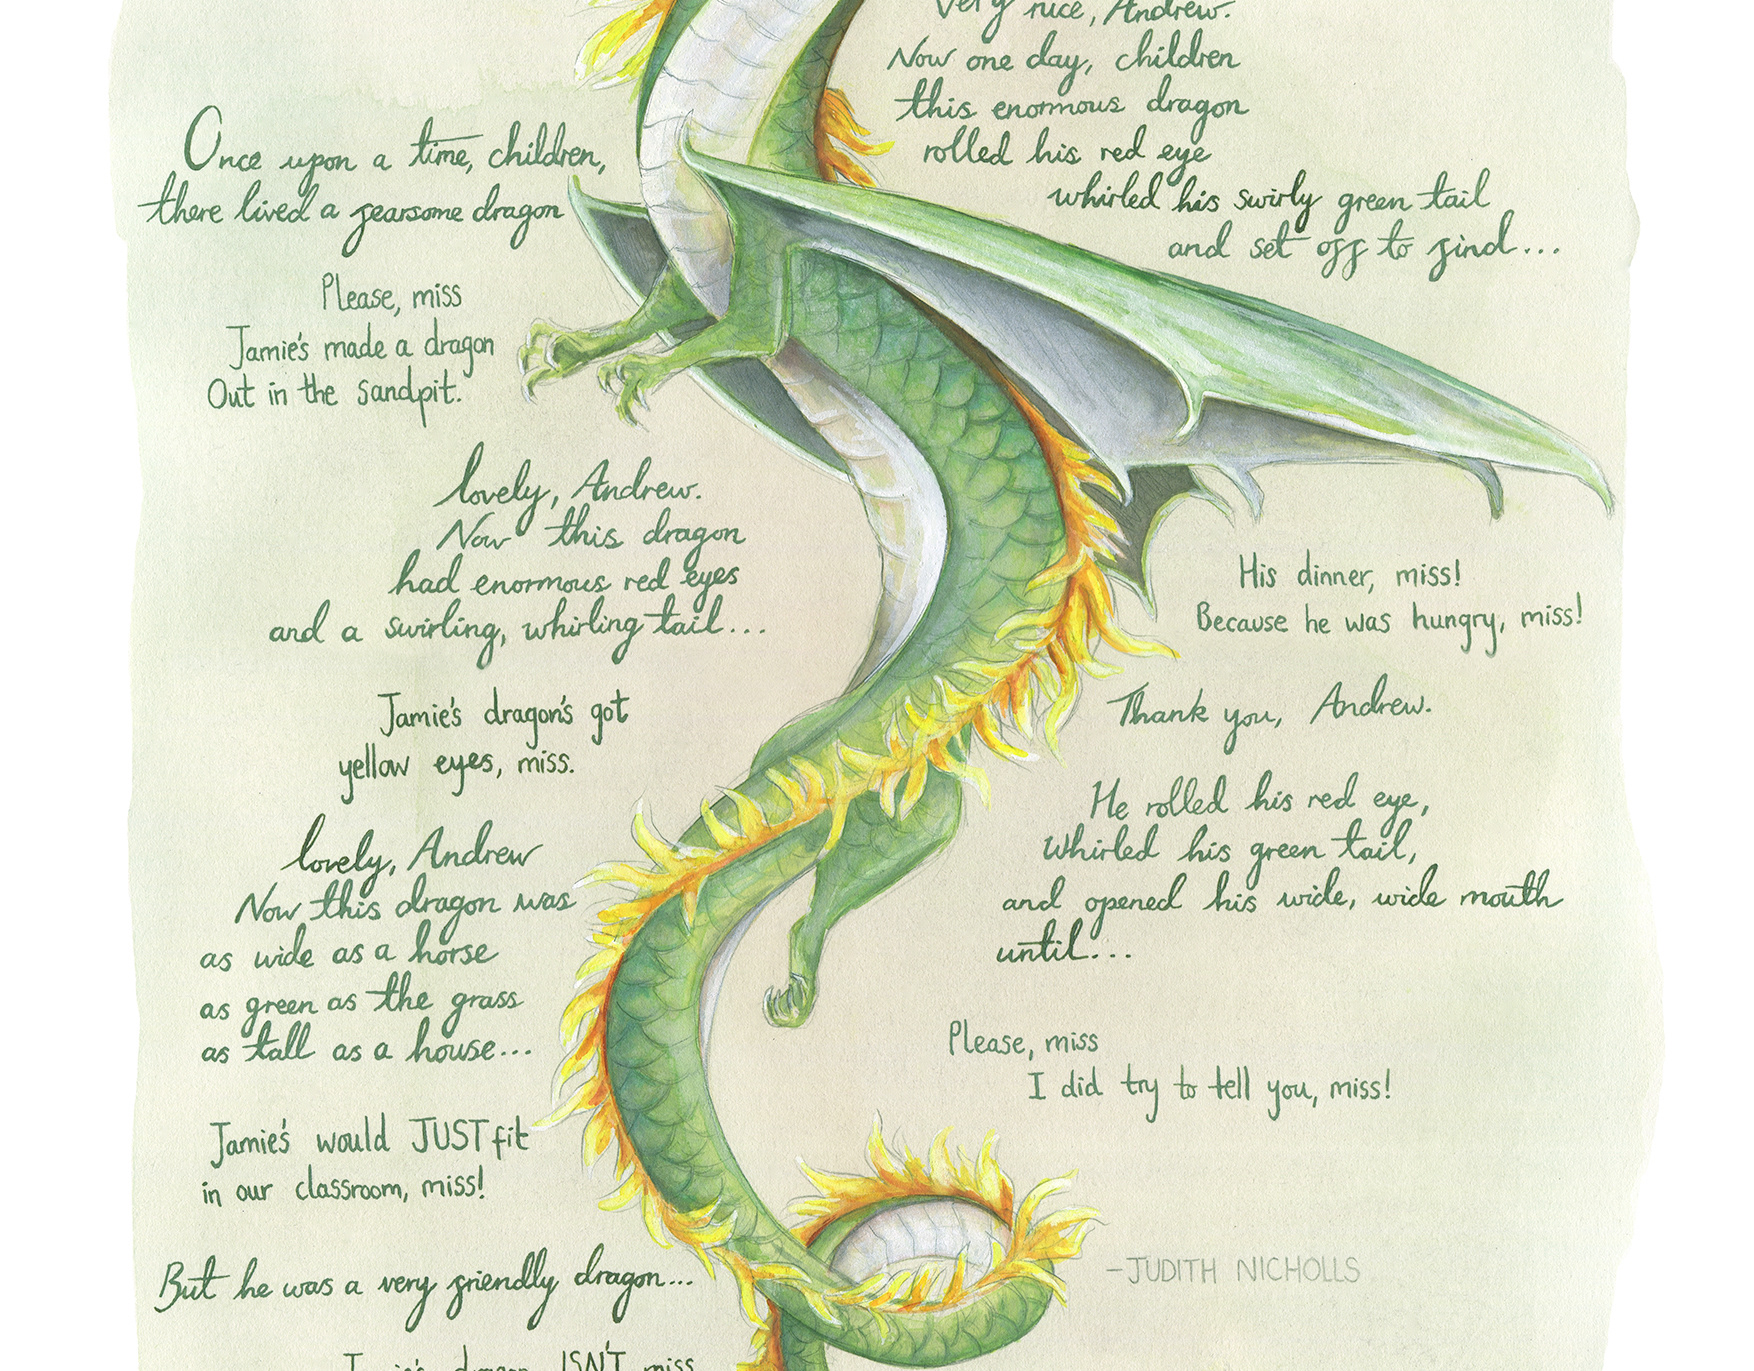 Once upon a time, children,
there lived a fearsome dragon
Please, miss
Jamie's made a dragon
Out in the sandpit.
lovely, Andrew.
Now this dragon
had enormous red eyes
and a swirling, whirling tail...
Jamie's dragon's got
yellow eyes, miss.
lovely, Andrew
Now this dragon was
as wide as a horse
as green as the grass
as tall as a house...
Jamie's would JUST fit
in our classroom, miss!
But he was a very friendly dragon...
Jamie's dragon ISN'T miss
Very nice, Andrew.
Now one day, children
this enormous dragon
rolled his red eye
whirled his swirly green tail
and set off to find...
His dinner, miss!
Because he was hungry, miss!
Thank you, Andrew.
He rolled his red eye,
Whirled his green tail,
and opened his wide, wide mouth
until...
Please, miss
I did try to tell you, miss!
-JUDITH NICHOLLS